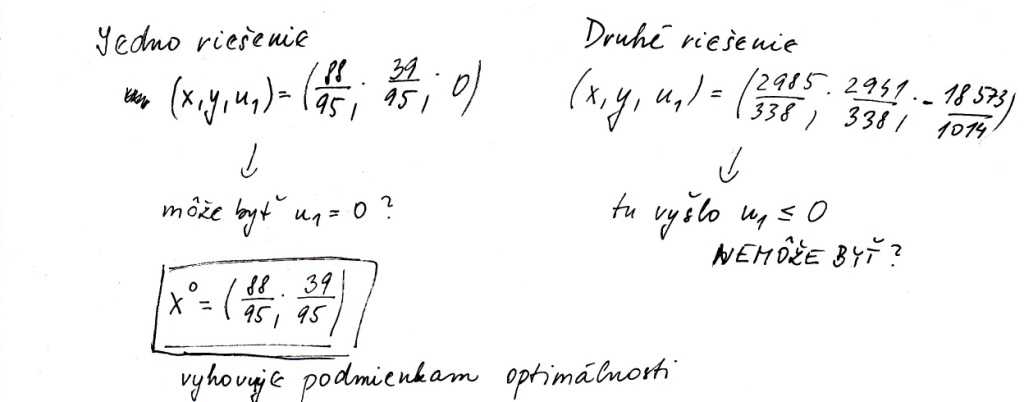 Jedno riešenie
(x, y, u₁) = (88/95; 39/95; 0)
↓
môže byť u₁ = 0 ?
x⁰ = (88/95; 39/95)
vyhovuje podmienkam optimálnosti
Druhé riešenie
(x, y, u₁) = (2985/338; 2941/338; -18573/1014)
↓
tu vyšlo u₁ ≤ 0
NEMÔŽE BYŤ ?